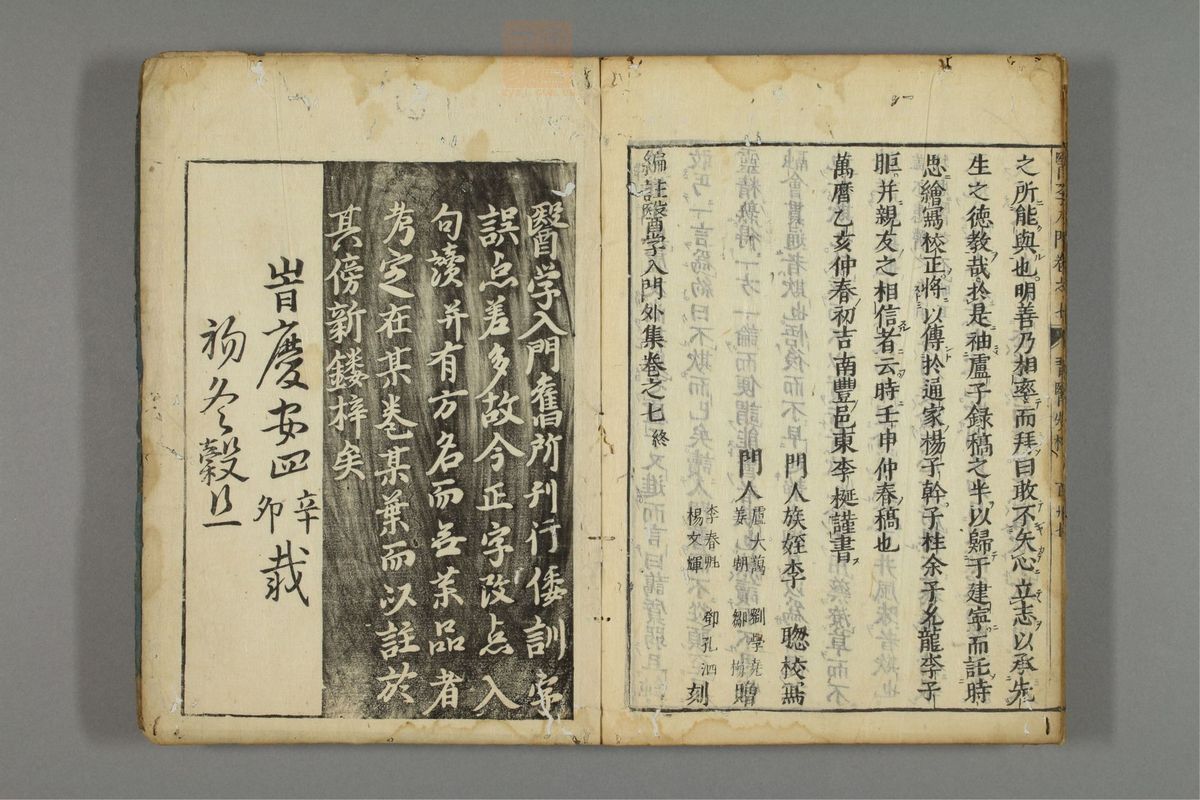 之所能與也明善乃相率而拜曰敢不矢心立志以承先
生之徳教哉於是袖盧子錄稿之半以歸于建寧而託時
忠繪寫校正將以傳於通家楊子幹子桂余子允龍李子
昛并親友之相信者云時壬申仲春稿也
萬曆乙亥仲春初吉南豐邑東李梴謹書
門人族姪李聰校寫
門人
盧大謁 劉學堯
姜朝 鄒梅 贈
李春
楊文輝 鄧孔泗 刻
編註醫学入門外集卷之七 終
醫学入門舊所刊行倭訓字
誤点差多故今正字改点入
句讀并有方名而無藥品者
考定在某卷某葉而以註於
其傍新鏤梓矣
旹慶安四辛卯載
初冬穀旦